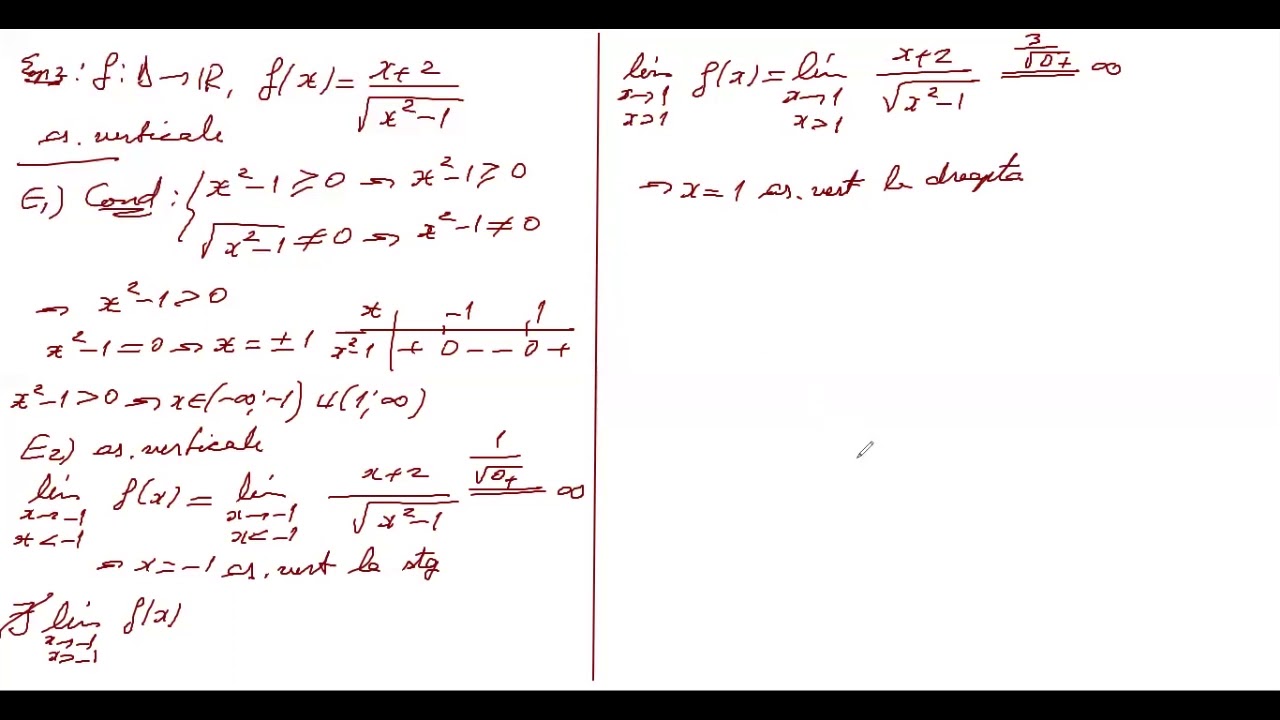 Ex2: f: D → ℝ, f(x) = (x+2)/√(x²-1)
as. verticale
E₁) Cond: { x²-1 ≥ 0 ⇒ x²-1 ≥ 0
√(x²-1) ≠ 0 ⇒ x²-1 ≠ 0
⇒ x²-1 > 0
x²-1 = 0 ⇒ x = ±1
x | -1 1
x²-1 | + 0 - - 0 +
x²-1 > 0 ⇒ x ∈ (-∞; -1) ∪ (1; ∞)
E₂) as. verticale
lim x→-1 x<-1 f(x) = lim x→-1 x<-1 (x+2)/√(x²-1) = 1/√0+ ∞
⇒ x = -1 as. vert la stg
∄ lim x→-1 x>-1 f(x)
lim x→1 x>1 f(x) = lim x→1 x>1 (x+2)/√(x²-1) = 3/√0+ ∞
⇒ x = 1 as. vert la dreapta